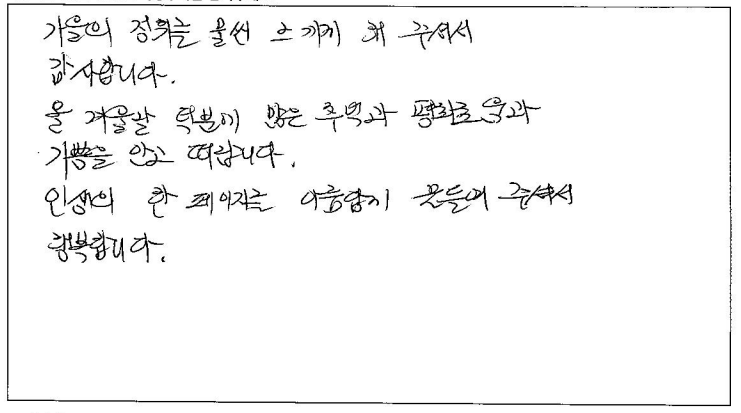 가을의 정취를 물씬 느끼게 해 주셔서
감사합니다.
올 가을날 덕분에 많은 추억과 평화로움과
기쁨을 안고 떠납니다.
인생의 한 페이지를 아름답게 만들어 주셔서
행복합니다.